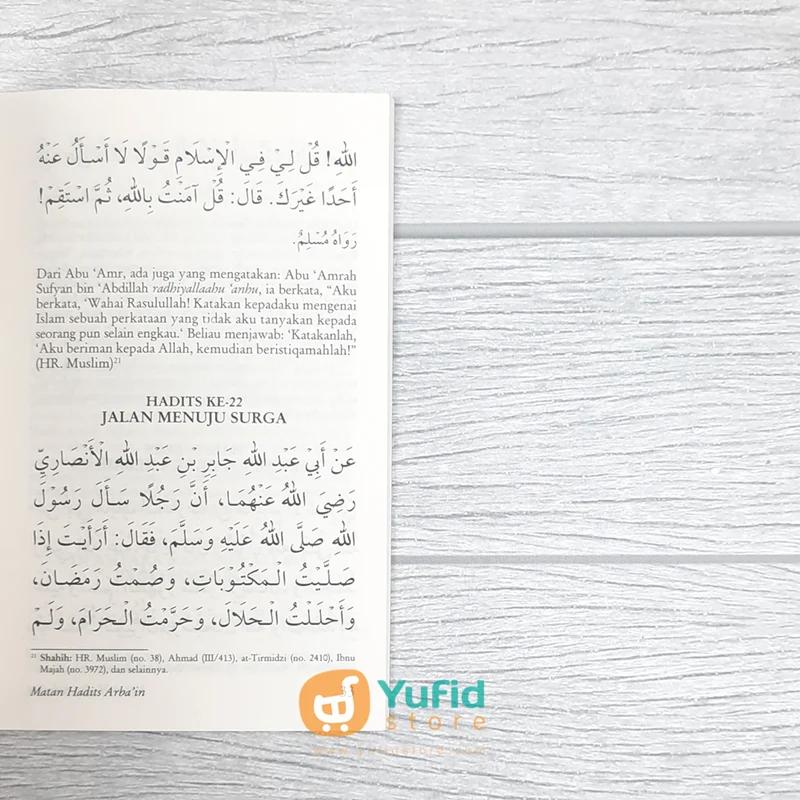 اللهِ! قُلْ لِيْ فِي الْإِسْلَامِ قَوْلًا لَا أَسْأَلُ عَنْهُ
أَحَدًا غَيْرَكَ. قَالَ: قُلْ آمَنْتُ بِاللهِ، ثُمَّ اسْتَقِمْ!
رَوَاهُ مُسْلِمٌ.
Dari Abu ‘Amr, ada juga yang mengatakan: Abu ‘Amrah
Sufyan bin ‘Abdillah radhiyallaahu ‘anhu, ia berkata, “Aku
berkata, ‘Wahai Rasulullah! Katakan kepadaku mengenai
Islam sebuah perkataan yang tidak aku tanyakan kepada
seorang pun selain engkau.‘ Beliau menjawab: ‘Katakanlah,
‘Aku beriman kepada Allah, kemudian beristiqamahlah!”
(HR. Muslim)²¹
HADITS KE-22
JALAN MENUJU SURGA
عَنْ أَبِيْ عَبْدِ اللهِ جَابِرِ بْنِ عَبْدِ اللهِ الْأَنْصَارِيِّ
رَضِيَ اللهُ عَنْهُمَا، أَنَّ رَجُلًا سَأَلَ رَسُوْلَ
اللهِ صَلَّى اللهُ عَلَيْهِ وَسَلَّمَ، فَقَالَ: أَرَأَيْتَ إِذَا
صَلَّيْتُ الْمَكْتُوْبَاتِ، وَصُمْتُ رَمَضَانَ،
وَأَحْلَلْتُ الْحَلَالَ، وَحَرَّمْتُ الْحَرَامَ، وَلَمْ
²¹ Shahih: HR. Muslim (no. 38), Ahmad (III/413), at-Tirmidzi (no. 2410), Ibnu
Majah (no. 3972), dan selainnya.
Matan Hadits Arba’in
Yufid
store
www.yufidstore.com